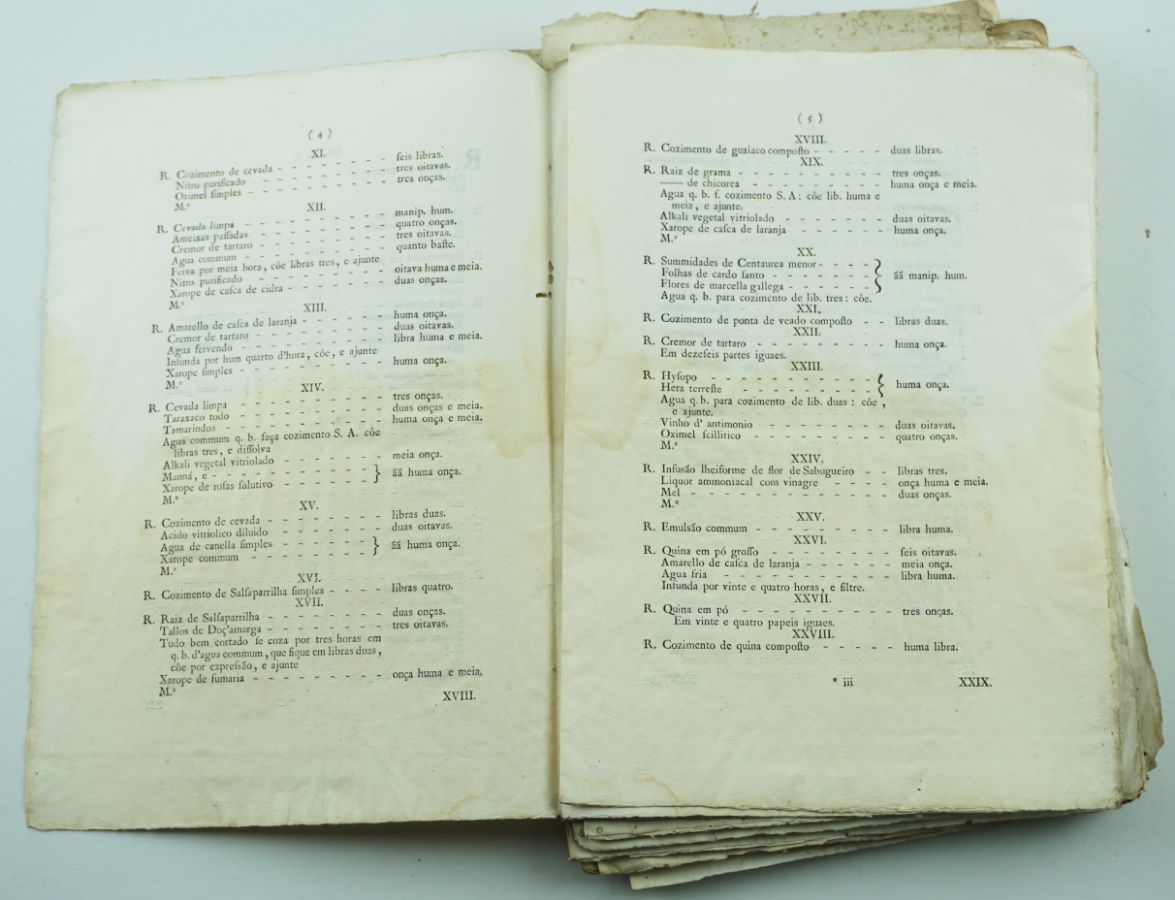 ( 4 )
XI.
R. Cozimento de cevada - - - - - - - ſeis libras.
Nitro purificado - - - - - - - - tres oitavas.
Oximel ſimples - - - - - - - - tres onças.
M.ᵉ
XII.
R. Cevada limpa - - - - - - - - manip. hum.
Ameixas paſſadas - - - - - - - - quatro onças.
Cremor de tartaro - - - - - - - - tres oitavas.
Agua commum - - - - - - - - quanto baſte.
Ferva por meia hora, côe libras tres, e ajunte
Nitro purificado - - - - - - - - oitava huma e meia.
Xarope de caſca de cidra - - - - - - duas onças.
M.ᵉ
XIII.
R. Amarello de caſca de laranja - - - - - huma onça.
Cremor de tartaro - - - - - - - - duas oitavas.
Agua fervendo - - - - - - - - libra huma e meia.
Infunda por hum quarto d'hora, côe, e ajunte
Xarope ſimples - - - - - - - - huma onça.
M.ᵉ
XIV.
R. Cevada limpa - - - - - - - - tres onças.
Taraxaco todo - - - - - - - - duas onças e meia.
Tamarindos - - - - - - - - huma onça e meia.
Agua commum q. b. faça cozimento S. A. côe
libras tres, e diſſolva
Alkali vegetal vitriolado - - - - - - meia onça.
Manná, e - - - - - - - - }
Xarope de roſas ſolutivo - - - - - } ãã huma onça.
M.ᵉ
XV.
R. Cozimento de cevada - - - - - - - libras duas.
Acido vitriolico diluido - - - - - - duas oitavas.
Agua de canella ſimples - - - - - - }
Xarope commum - - - - - - - } ãã huma onça.
M.ᵉ
XVI.
R. Cozimento de Salſaparrilha ſimples - - - - libras quatro.
XVII.
R. Raiz de Salſaparrilha - - - - - - - duas onças.
Tallos de Doç'amarga - - - - - - - tres oitavas.
Tudo bem cortado ſe coza por tres horas em
q. b. d'agua commum, que fique em libras duas,
côe por expreſsão, e ajunte
Xarope de fumaria - - - - - - - - onça huma e meia.
M.ᵉ
XVIII.
( 5 )
XVIII.
R. Cozimento de guaiaco compoſto - - - - - duas libras.
XIX.
R. Raiz de grama - - - - - - - - tres onças.
—— de chicorea - - - - - - - - huma onça e meia.
Agua q. b. f. cozimento S. A: côe lib. huma e
meia, e ajunte.
Alkali vegetal vitriolado - - - - - - duas oitavas.
Xarope de caſca de laranja - - - - - huma onça.
M.ᵉ
XX.
R. Summidades de Centaurea menor - - - - }
Folhas de cardo ſanto - - - - - - } ãã manip. hum.
Flores de marcella gallega - - - - - - }
Agua q. b. para cozimento de lib. tres: côe.
XXI.
R. Cozimento de ponta de veado compoſto - - libras duas.
XXII.
R. Cremor de tartaro - - - - - - - huma onça.
Em dezeſeis partes iguaes.
XXIII.
R. Hyſopo - - - - - - - - - - }
Hera terreſte - - - - - - - - - } huma onça.
Agua q. b. para cozimento de lib. duas: côe,
e ajunte.
Vinho d' antimonio - - - - - - - duas oitavas.
Oximel ſcillitico - - - - - - - - quatro onças.
M.ᵉ
XXIV.
R. Infuſão lheiforme de flor de Sabugueiro - - libras tres.
Liquor ammoniacal com vinagre - - - - - onça huma e meia.
Mel - - - - - - - - - - - duas onças.
M.ᵉ
XXV.
R. Emulsão commum - - - - - - - - libra huma.
XXVI.
R. Quina em pó groſſo - - - - - - - - ſeis oitavas.
Amarello de caſca de laranja - - - - - - meia onça.
Agua fria - - - - - - - - - - libra huma.
Infunda por vinte e quatro horas, e filtre.
XXVII.
R. Quina em pó - - - - - - - - - tres onças.
Em vinte e quatro papeis iguaes.
XXVIII.
R. Cozimento de quina compoſto - - - - - huma libra.
* iii XXIX.